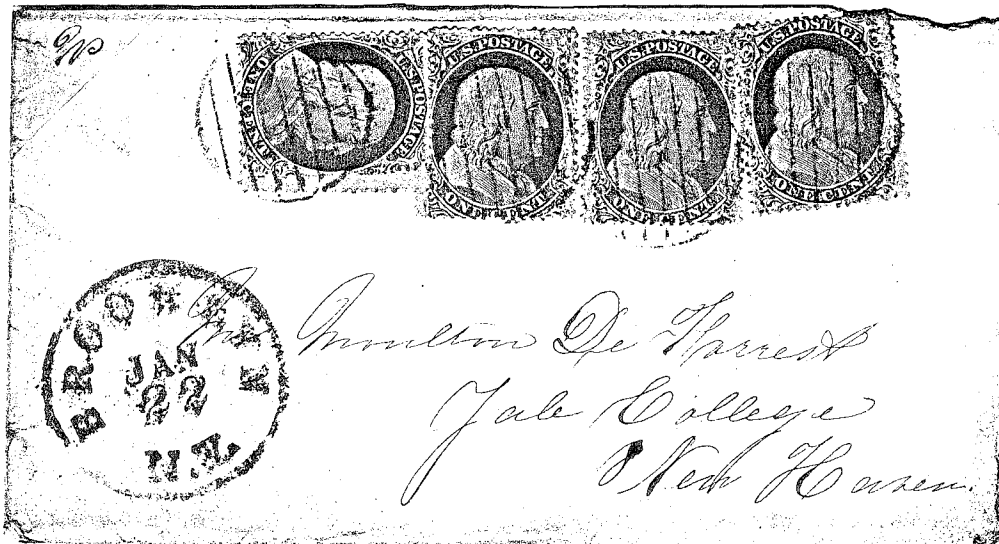 U.S. POSTAGE
ONE CENT
U.S. POSTAGE
ONE CENT
U.S. POSTAGE
ONE CENT
U.S. POSTAGE
ONE CENT
BROOKLYN
JAN
22
N.Y.
Mr Moulton De Forrest
Yale College
New Haven